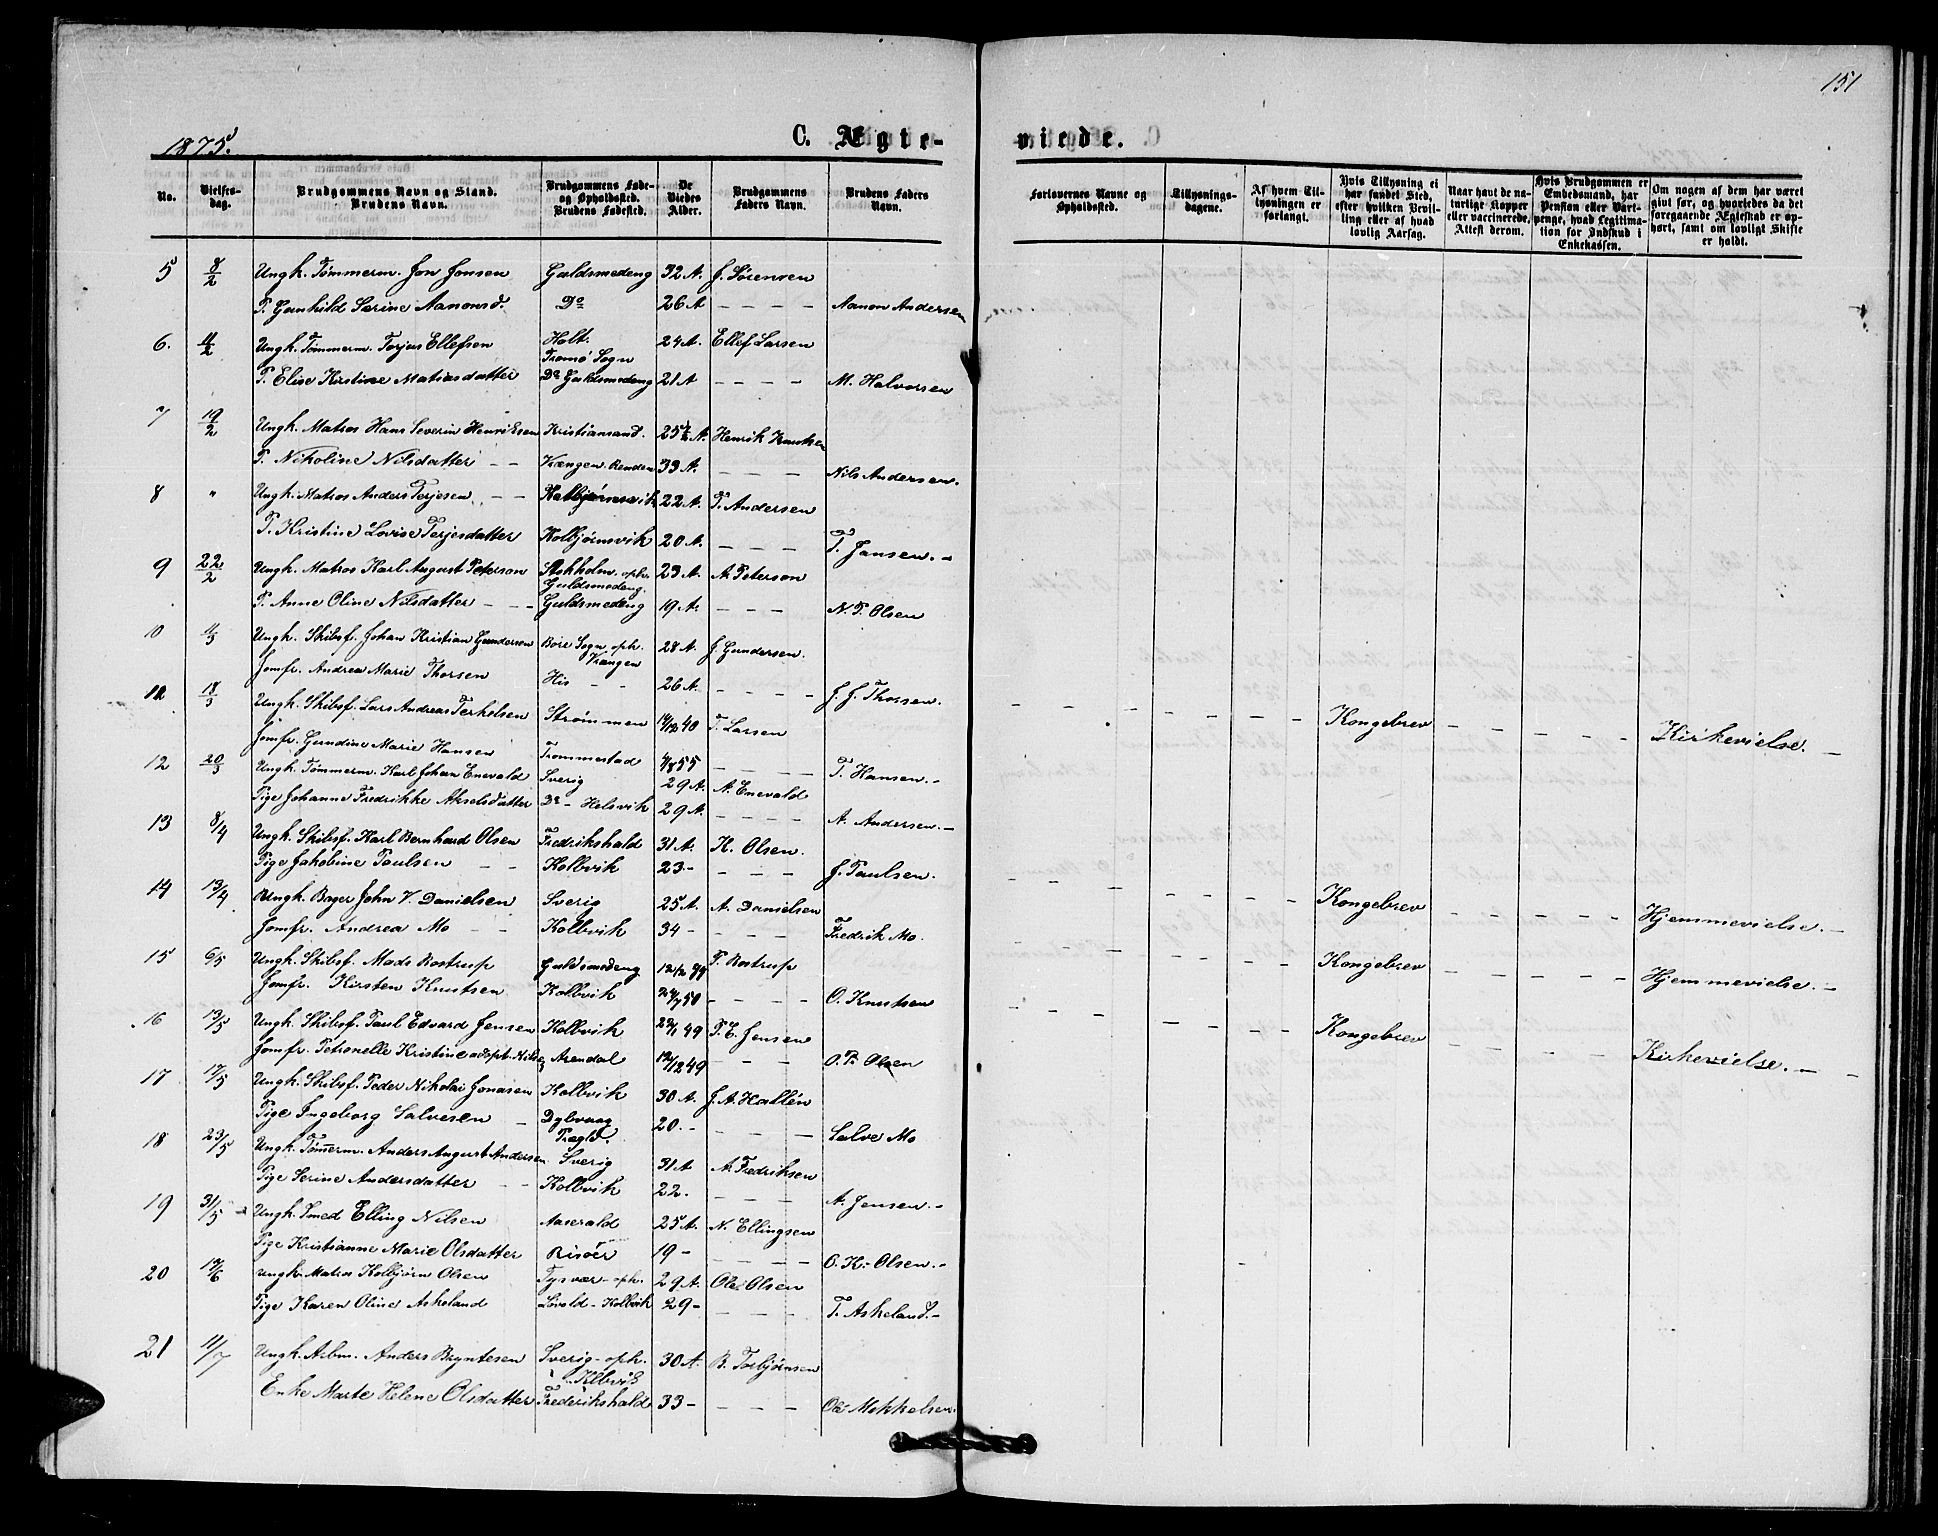 151
1875.
C. Ægte-
viede.
No.
Vielses-
dag.
Brudgommens Navn og Stand.
Brudens Navn.
Brudgommens Føde-
og Opholdssted.
Brudens Fødested.
De
Viedes
Alder.
Brudgommens
Faders Navn.
Brudens Faders
Navn.
Forlovernes Navne og
Opholdssted.
Tillysnings-
dagene.
Af hvem Til-
lysningen er
forlangt.
Hvis Tillysning ei
har fundet Sted,
efter hvilken Bevil-
ling eller af hvad
lovlig Aarsag.
Naar havt de na-
turlige Kopper
eller vaccinerede,
Attest derom.
Hvis Brudgommen er
Embedsmand, har
Pension eller Vart-
penge, hvad Legitima-
tion for Indskud i
Enkekassen.
Om nogen af dem har været
gift før, og hvorledes da det
foregaaende Ægteskab er op-
hørt, samt om lovligt Skifte
er holdt.
5 8/2 Ungk. Tømmerm. Jon Jonsen Guldsmedeng 32 A. J. Sørensen
P. Gunhild Serine Aanonsd. Do 26 A - - - - Aanon Andersen
6. 11/2 Ungk. Tømmerm. Torjus Ellefsen Holt. 24 A. Ellef Larsen
Tromø Sogn
P. Elise Kirstine Matiasdatter Do Guldsmedeng 21 A - - - - M. Halvorsen
7 19/2 Ungk. Matros Hans Severin Henriksen Kristiansand. 25½ A. Henrik Knutsen
P. Nikoline Nilsdatter - - Vrængen. Renden 33 A. - - - Nils Andersen.
8 " Ungk. Matros Anders Terjesen - - Kolbjørnsvik 22 A. T. Andersen
P. Kristine Lovise Terjesdatter Kolbjørnsvik 20 A. - - - T. Jansen. -
9 22/2 Ungk. Matros Karl August Peterson Stokholm. oph. 23 A. A. Peterson
Guldsmedeng.
P. Anne Oline Nilsdatter - - - Guldsmedeng 19 A. - - - N. P. Olsen
10 11/3 Ungk. Skibsf. Johan Kristian Gundersen Bore Sogn oph. 28 A. J. Gundersen.
Vrængen
Jomfr. Andrea Marie Thorsen His - - 26 A. - - - - J. J. Thorsen.
11 18/3 Ungk. Skibsf. Lars Andreas Terkelsen Strømmen 14/12 40 T. Larsen - - - - - - Kongebrev - - - - - Kirkevielse. -
Jomfr. Gundine Marie Hansen Trommestad 4/8 55 - - - - T. Hansen. -
12 20/3 Ungk. Tømmerm. Karl Johan Enevald Sverig 29 A. A. Enevald
Pige Johanne Fredrikke Akselsdatter Do - Helsvik 29 A. - - - - A. Andersen. -
13 8/4 Ungk. Skibsf. Karl Bernhard Olsen Fredrikshald 31 A. K. Olsen.
Pige Jakobine Paulsen - - Kolbvik 23 - - - - - J. Paulsen.
14 13/4 Ungk. Bager John V. Danielsen Sverig 25 A. A. Danielsen - - - - - - Kongebrev - - - - - Hjemmevielse. -
Jomfr. Andrea Mo - - Kolbvik 34 - - - - Fredrik Mo.
15 6/5 Ungk. Skibsf. Mads Rostrup Guldsmedeng 12/2 44 P. Rostrup - - - - - - Kongebrev - - - - - Hjemmevielse. -
Jomfr. Kirsten Knutsen Kolbvik 24/7 50 - - - - O. Knutsen
16 13/5 Ungk. Skibsf. Paul Edvard Jensen Kolbvik 29/1 49 P. E. Jensen - - - - - - Kongebrev - - - - - Kirkevielse. - -
Jomfr. Petronelle Kristine adopt. Nilsen Arendal 12/12 49 - - - O. P. Olsen
17 17/5 Ungk. Skibsf. Peder Nikolai Jonasen Kolbvik 30 A. J. A. Hallén
Pige Ingeborg Salvesen - Dybvaag 20. - - - - Salve Mo
Prægld.
18 23/5 Ungk. Tømmerm. Anders August Andersen Sverig 31 A A. Fredriksen
Pige Serine Andersdatter - - Kolbvik 22. - - - A. Jensen. -
19 31/5 Ungk. Smed Elling Nilsen Aaserald 25 A. N. Ellingsen
Pige Kristianne Marie Olsdatter Risöer 19 - - - - - O. K. Olsen. -
20 19/6 Ungk. Matros Kolbjørn Olsen Tysvær - oph. 29 A. Ole Olsen
Pige Karen Oline Askeland Kolbvik 29 - - - - T. Askeland. -
21 11/7 Ungk. Arbm. Anders Bryntesen Sverig - oph. 30 A. B. Torbjørnsen
Klbvik
Enke Marte Helene Olsdatter Frederikshald 33 - - - - - Ole Mokkelsen.